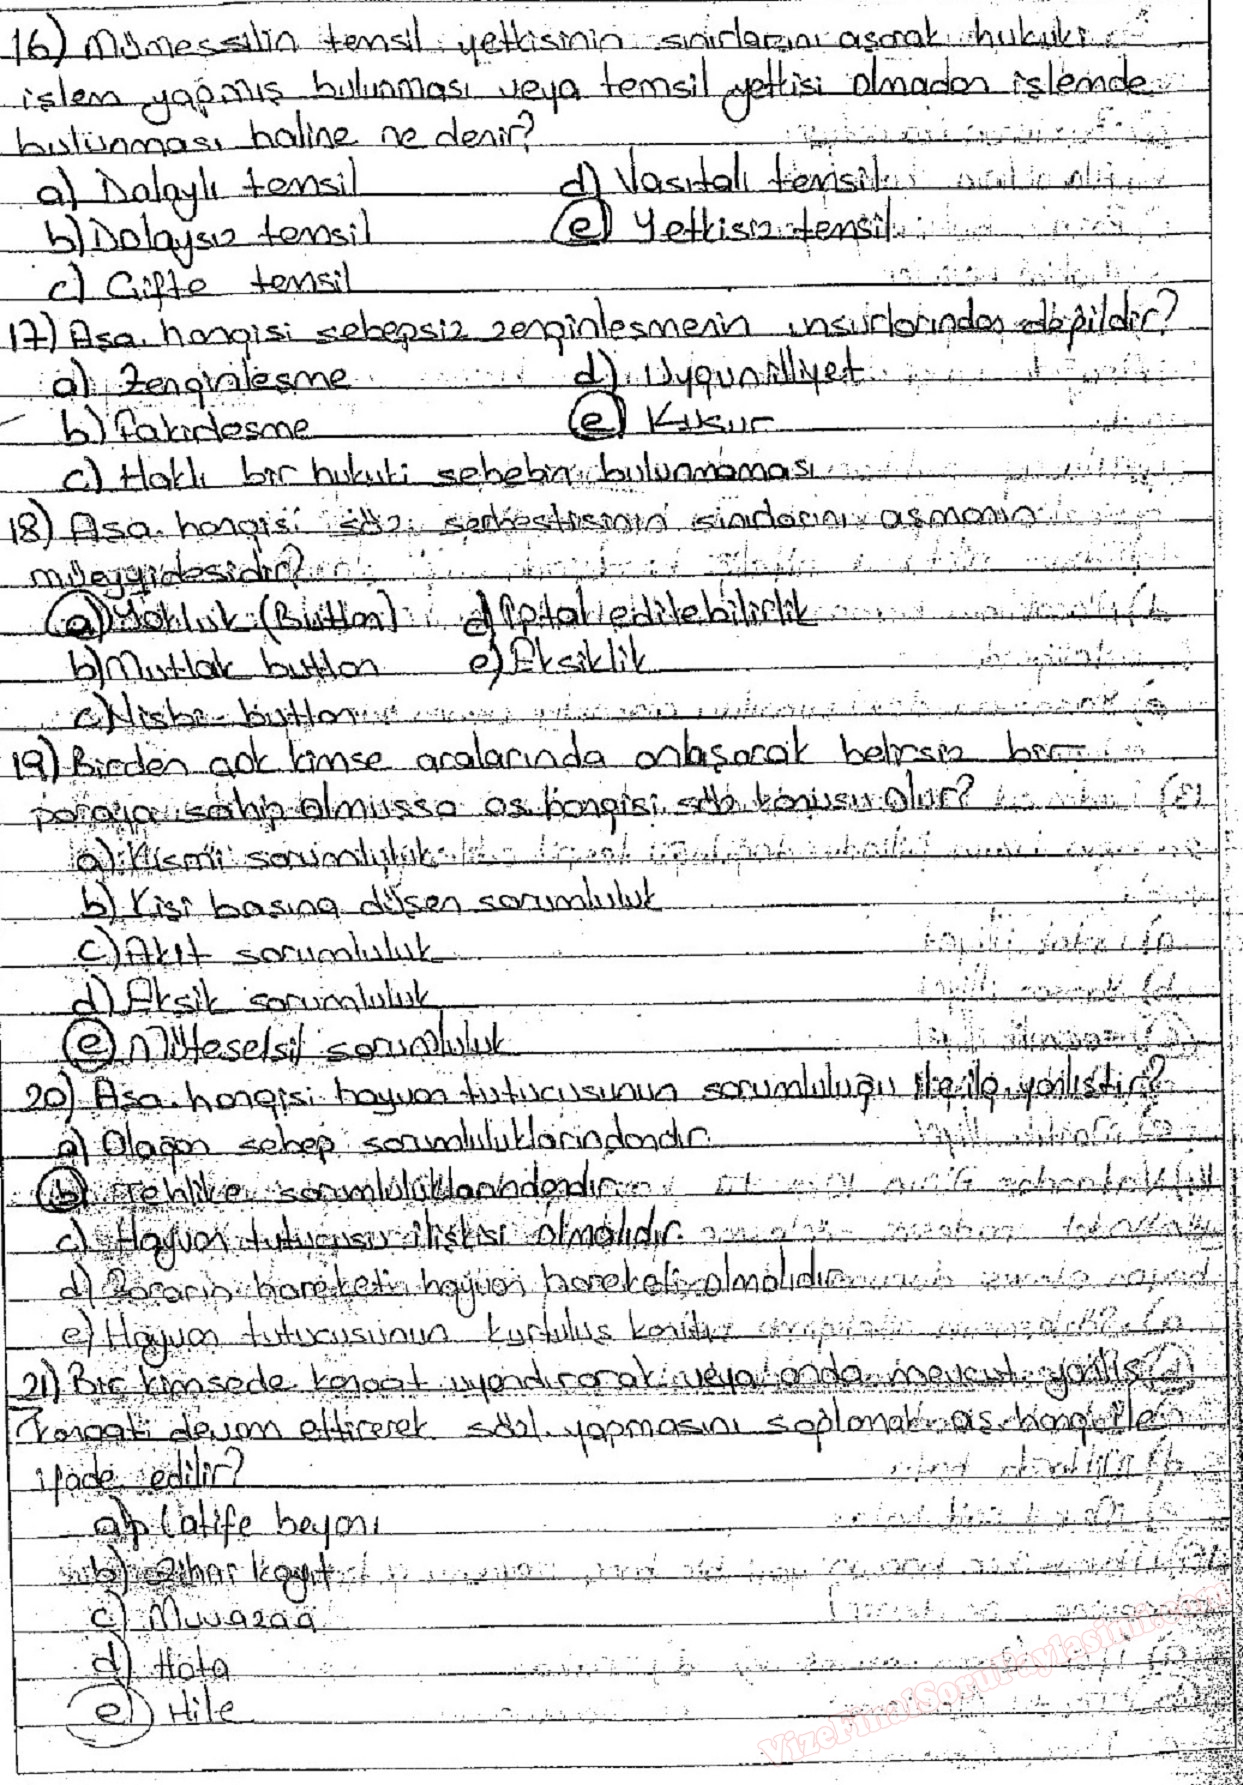 16) Mümessilin temsil yetkisinin sınırlarını aşarak hukuki
işlem yapmış bulunması veya temsil yetkisi olmadan işlemde
bulunması haline ne denir?
a) Dolaylı temsil
d) Vasıtalı temsil
b) Dolaysız temsil
e) Yetkisiz temsil
c) Çifte temsil
17) Aşa. hangisi sebepsiz zenginleşmenin unsurlarından değildir?
a) Zenginleşme
d) Uygun illiyet
b) Fakirleşme
e) Kusur
c) Haklı bir hukuki sebebin bulunmaması
18) Aşa. hangisi söz. serbestisinin sınırlarını aşmanın
müeyyidesidir?
a) Yokluk (Butlan)
d) İptal edilebilirlik
b) Mutlak butlan
e) Eksiklik
c) Nisbi butlan
19) Birden çok kimse aralarında anlaşarak belirsiz bir
paraya sahip olmuşsa aş. hangisi söz konusu olur?
a) Kısmi sorumluluk
b) Kişi başına düşen sorumluluk
c) Akit sorumluluk
d) Eksik sorumluluk
e) Müteselsil sorumluluk
20) Aşa. hangisi hayvan tutucusunun sorumluluğu ile ilg. yanlıştır?
a) Olağan sebep sorumluluklarındandır
b) Tehlike sorumluluklarındandır
c) Hayvan tutucusu ilişkisi olmalıdır.
d) Zararın hareketi hayvan hareketi olmalıdır
e) Hayvan tutucusunun kurtuluş
21) Bir kimsede kanaat uyandırarak veya onda mevcut yanlış
kanaati devam ettirerek sözl. yapmasını sağlamak aş. hangi. ile
ifade edilir?
a) Latife beyanı
b) Zihni kayıt
c) Muvazaa
d) Hata
e) Hile
VizeFinalSoruPaylasimi.com